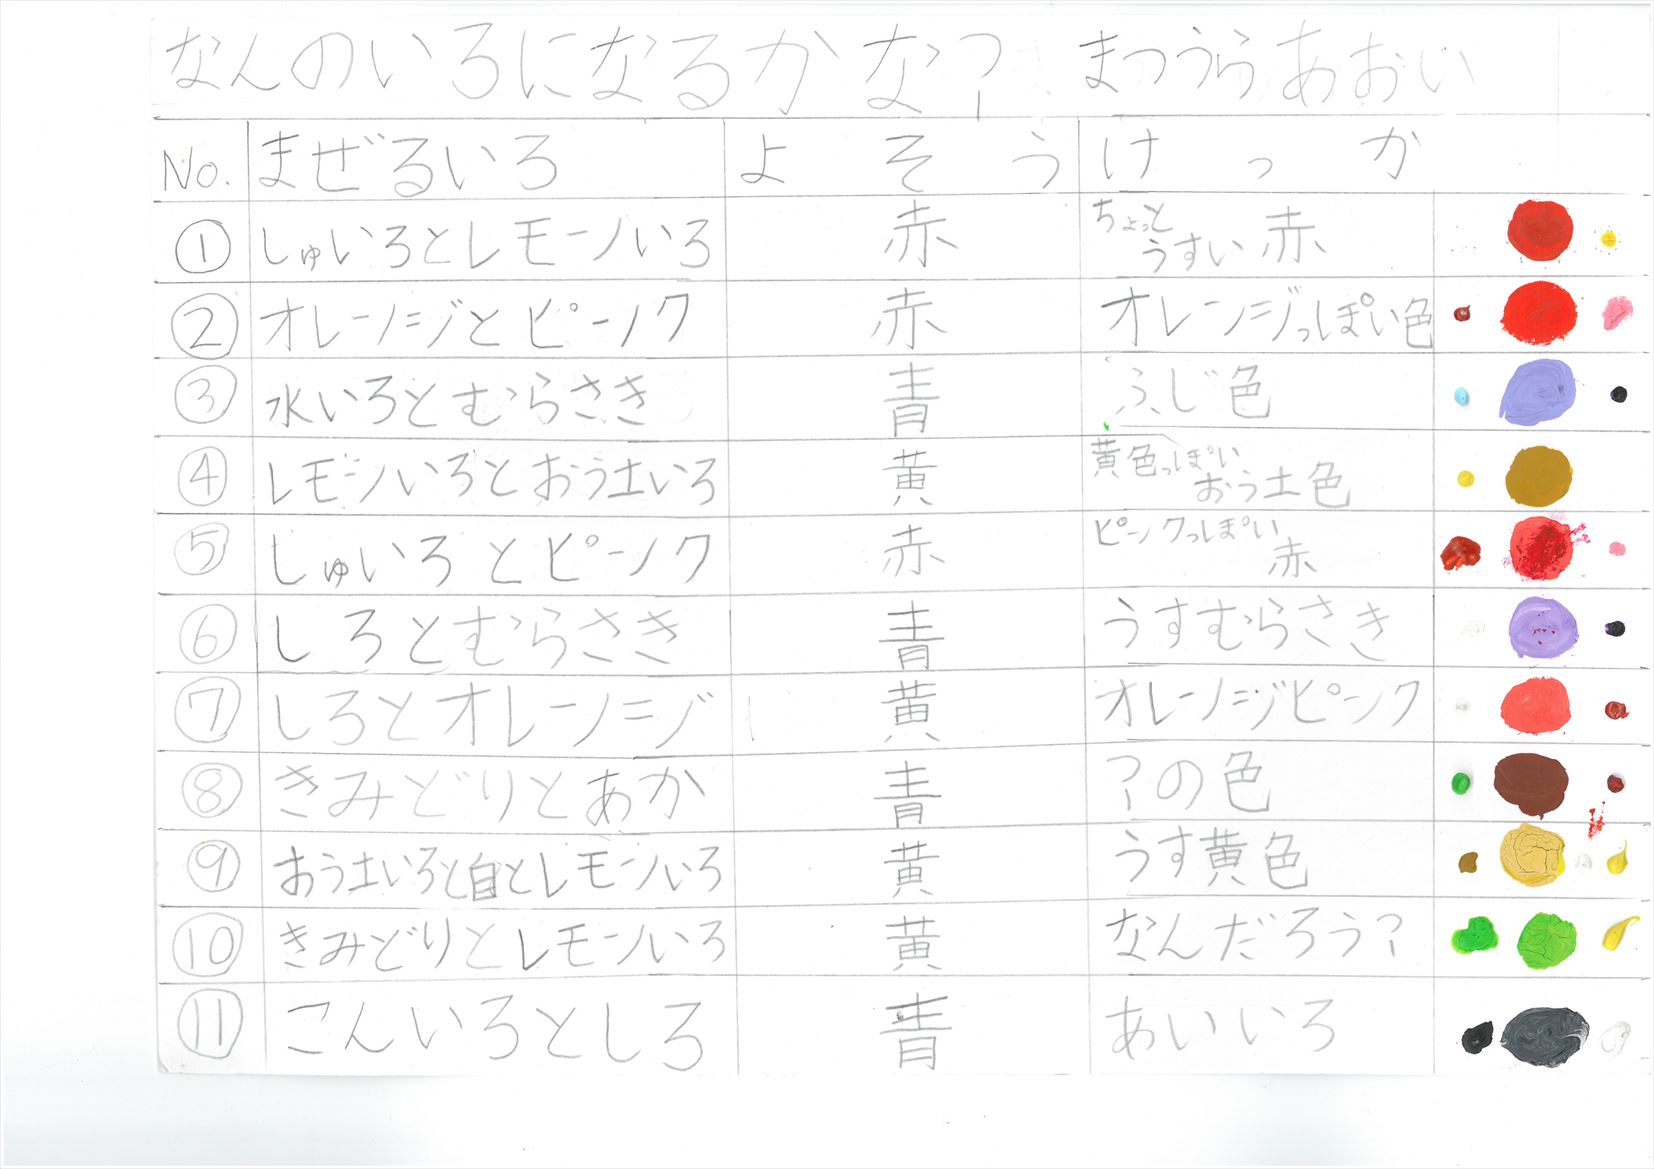 なんのいろになるかな? まつうらあおい
No. まぜるいろ よそう けっか
① しゅいろとレモンいろ 赤 ちょっとうすい赤
② オレンジとピンク 赤 オレンジっぽい色
③ 水いろとむらさき 青 ふじ色
④ レモンいろとおう土いろ 黄 黄色っぽいおう土色
⑤ しゅいろとピンク 赤 ピンクっぽい赤
⑥ しろとむらさき 青 うすむらさき
⑦ しろとオレンジ 黄 オレンジピンク
⑧ きみどりとあか 青 ?の色
⑨ おう土いろと白とレモンいろ 黄 うす黄色
⑩ きみどりとレモンいろ 黄 なんだろう?
⑪ こんいろとしろ 青 あいいろ